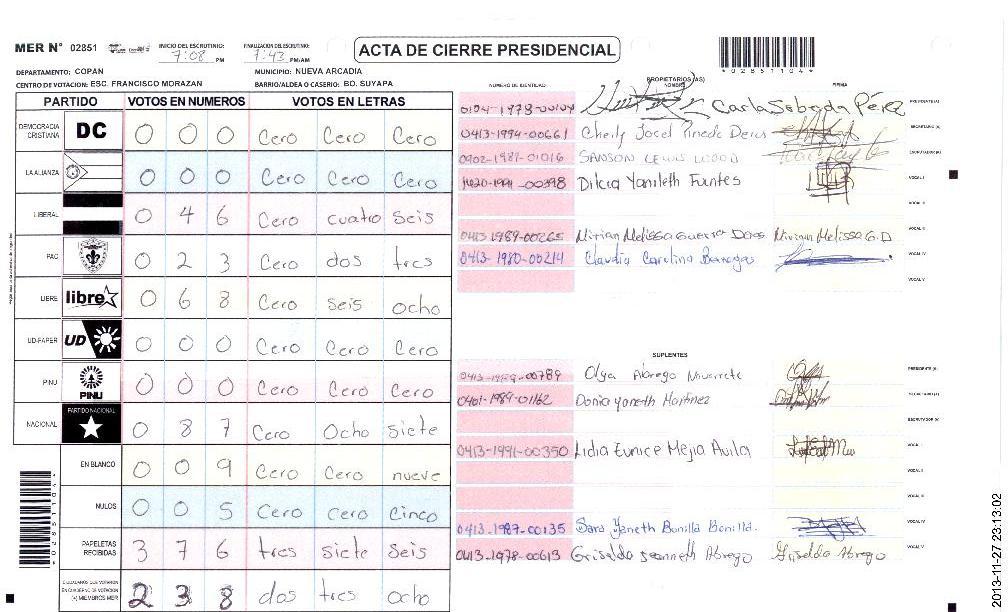 MER N° 02851
INICIO DEL ESCRUTINIO: 7:08 PM
FINALIZACION DEL ESCRUTINIO: 7:43 PM/AM
ACTA DE CIERRE PRESIDENCIAL
*02851104*
DEPARTAMENTO: COPÁN
MUNICIPIO: NUEVA ARCADIA
CENTRO DE VOTACION: ESC. FRANCISCO MORAZAN
BARRIO/ALDEA O CASERIO: BO. SUYAPA
PARTIDO VOTOS EN NUMEROS VOTOS EN LETRAS
DEMOCRACIA CRISTIANA DC 0 0 0 Cero Cero Cero
LA ALIANZA 0 0 0 Cero Cero Cero
LIBERAL 0 4 6 Cero cuatro seis
PAC 0 2 3 Cero dos tres
LIBRE libre 0 6 8 Cero seis ocho
UD-FAPER UD 0 0 0 Cero Cero Cero
PINU PINU 0 0 0 Cero Cero Cero
NACIONAL PARTIDO NACIONAL 0 8 7 Cero Ocho siete
EN BLANCO 0 0 9 Cero Cero nueve
NULOS 0 0 5 Cero cero cinco
PAPELETAS RECIBIDAS 3 7 6 tres siete seis
CIUDADANOS QUE VOTARON EN CUADERNO DE VOTACION (+) MIEMBROS MER 2 3 8 dos tres ocho
NUMERO DE IDENTIDAD: PROPIETARIOS (AS) NOMBRE FIRMA
Carla Sobeyda Pérez PRESIDENTE (A)
0413-1994-00661 SECRETARIO (A)
0902-1987-01016 SANSON LEWIS WOOD ESCRUTADOR (A)
1420-1991-00398 Dilcia Yanileth Fuentes VOCAL I
VOCAL II
0413-1989-00265 Mirian Melissa Guerra Mirian Melissa G.D VOCAL III
0413-1980-00214 Claudia Carolina Banegas VOCAL IV
VOCAL V
SUPLENTES
0413-1989-00789 Olga Abrego Navarrete PRESIDENTE (A)
0401-1989-01162 Dania Yaneth Martinez SECRETARIO (A)
ESCRUTADOR (A)
0413-1991-00350 Lidia Eunice Mejia Avila VOCAL I
VOCAL II
VOCAL III
0413-1987-00135 Sara Yaneth Bonilla Bonilla. VOCAL IV
0413-1978-00613 Griselda Jeanneth Abrego Griselda Abrego VOCAL V
*02851104*
2013-11-27 23:13:02